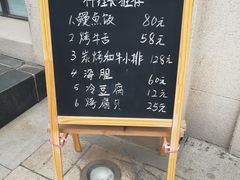 料理长推荐
1.鳗鱼饭 80元
2.烤牛舌 58元
3.炭烤和牛小排 128元
4.海胆 60元
5.冷豆腐 12元
6.烤扇贝 25元